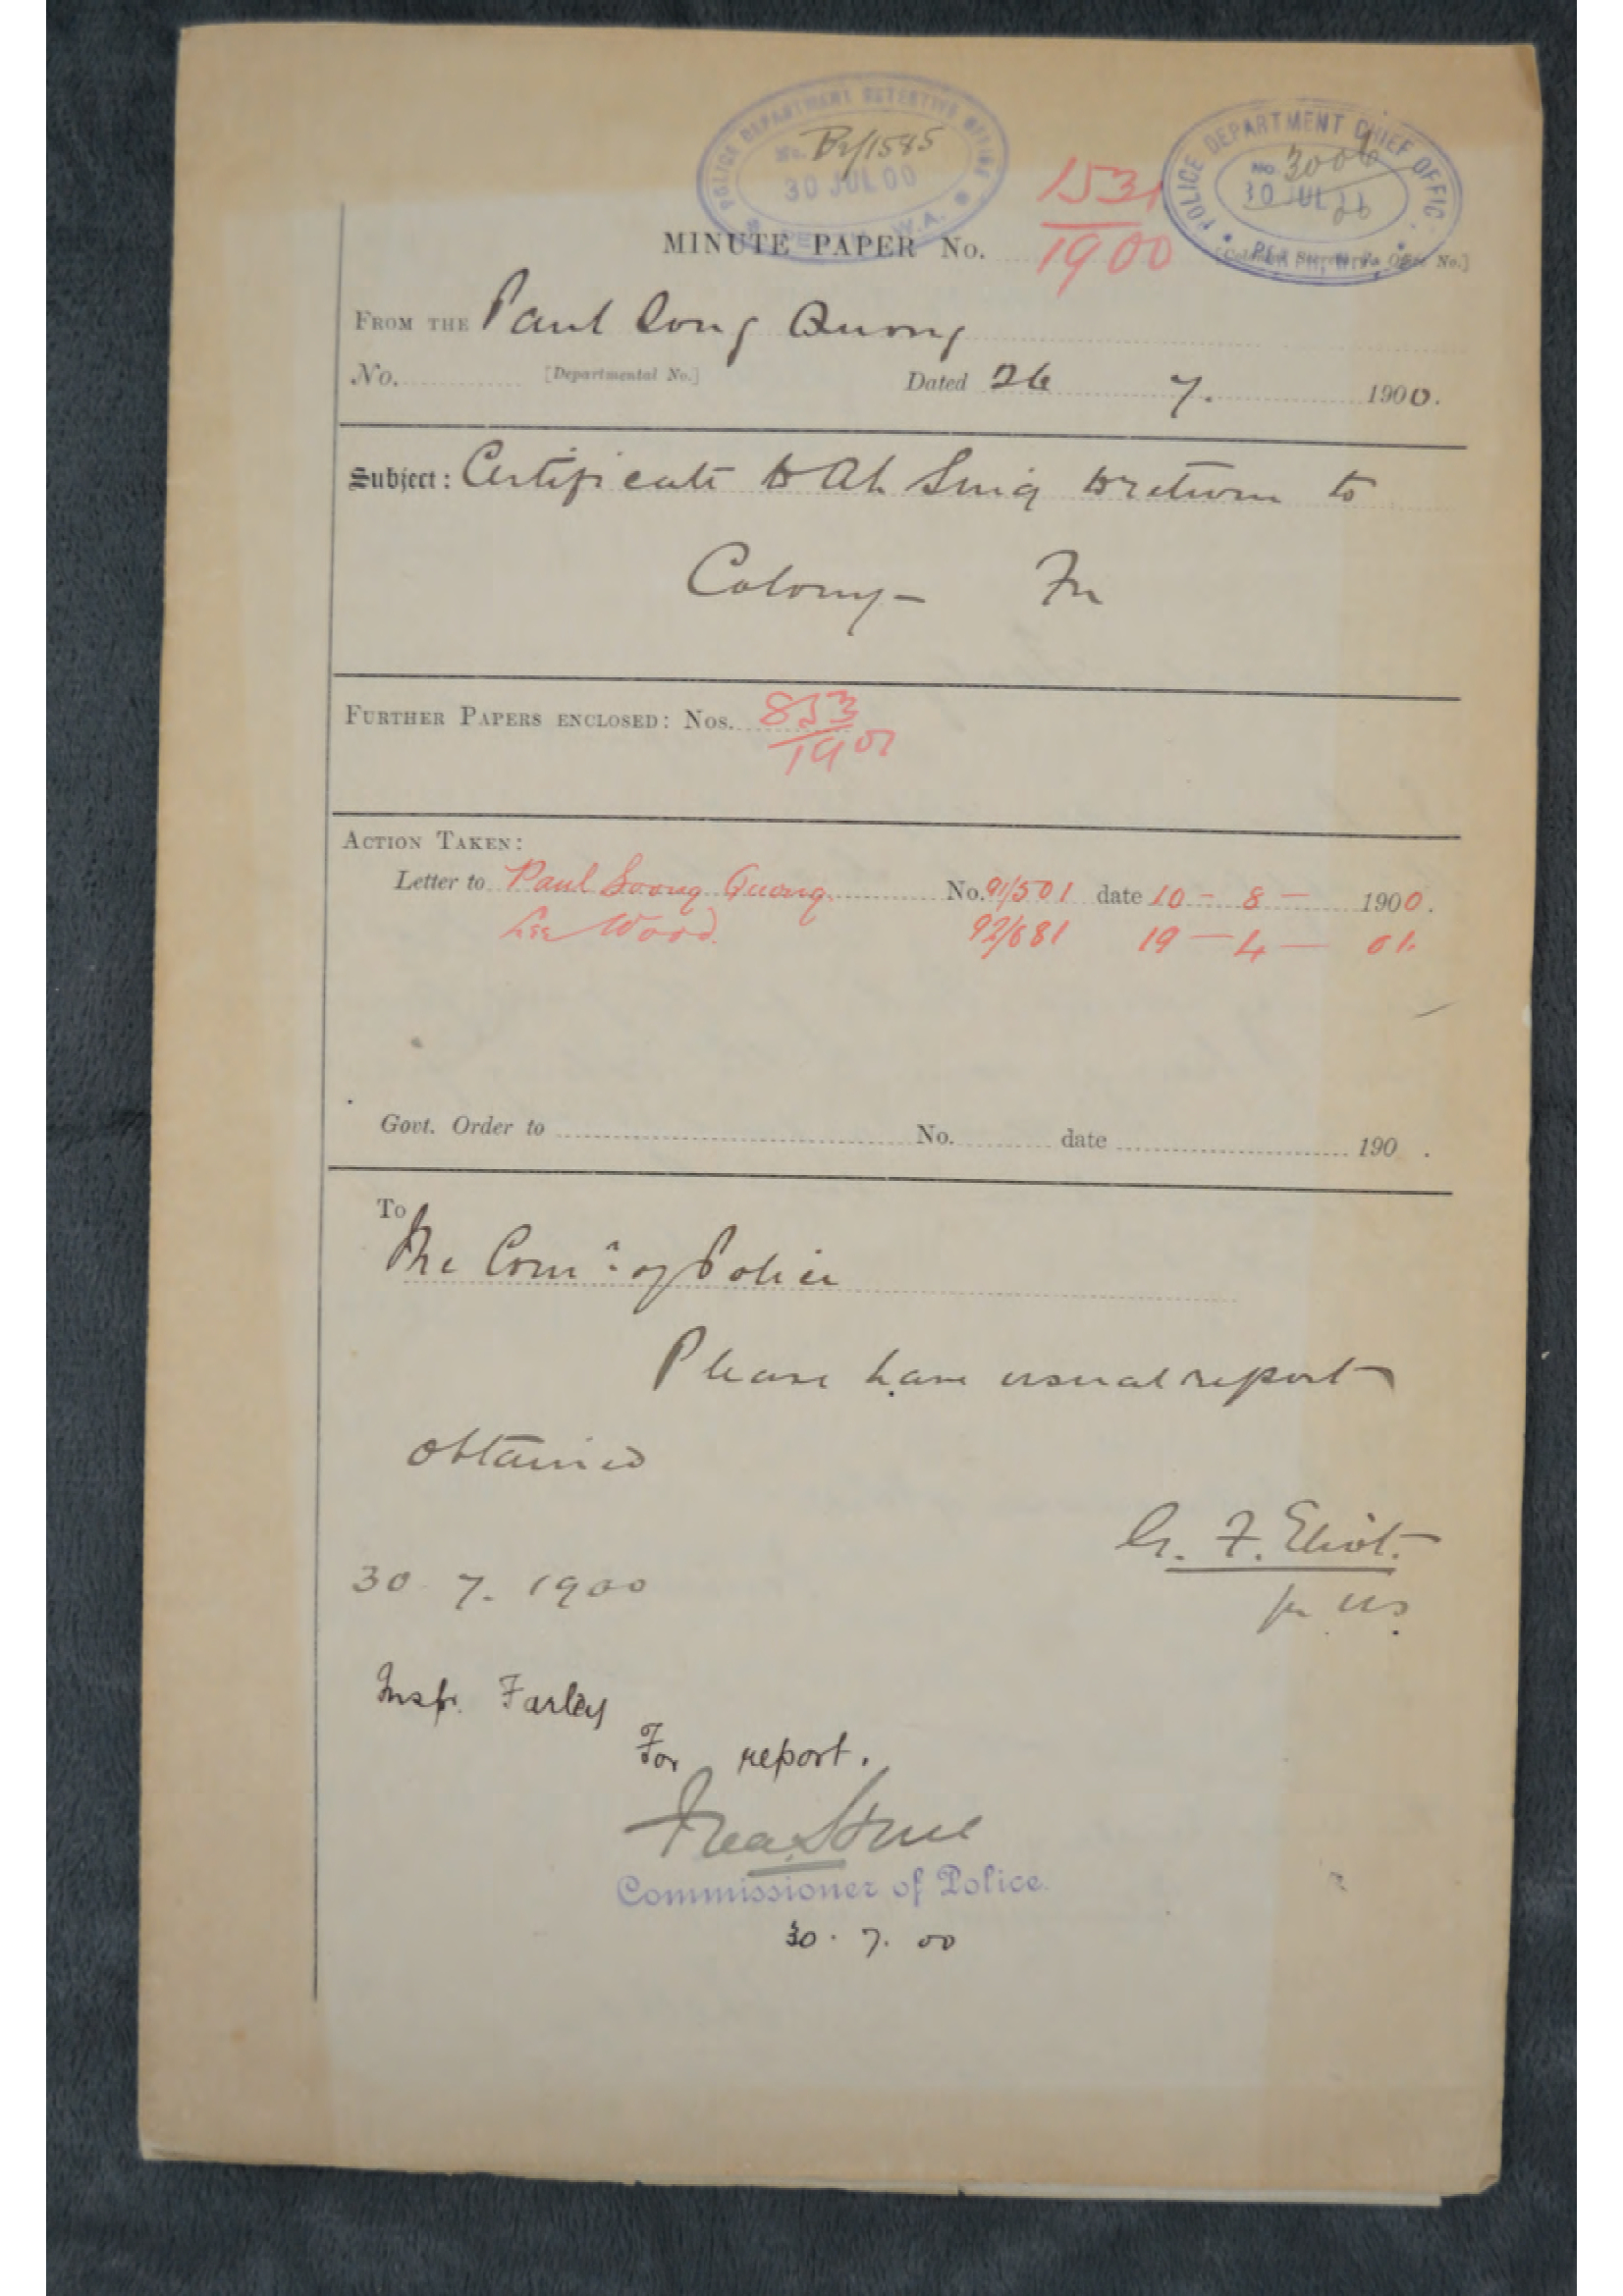 POLICE DEPARTMENT DETECTIVE OFFICE
No. By/1585
30 JUL 00
PERTH, W.A.
POLICE DEPARTMENT CHIEF OFFICE
No. 3006
30 JUL 00
PERTH, W.A.
MINUTE PAPER No. 1531/1900
[Colonial Secretary's Office No.]
FROM THE Paul Soong Quong
No. [Departmental No.] Dated 26 7. 1900.
Subject: Certificate to Ah Sing to return to
Colony –
FURTHER PAPERS ENCLOSED: Nos. 853/1901
ACTION TAKEN:
Letter to Paul Soong Quong No. 91/501 date 10 – 8 – 1900.
Lee Wood. 92/681 19 – 4 – 01.
Govt. Order to No. date 190 .
To
The Comr. of Police
Please have usual report
obtained
G. F. Eliot.
for US.
30. 7. 1900
Inspr. Farley
For report.
Commissioner of Police.
30. 7. 00